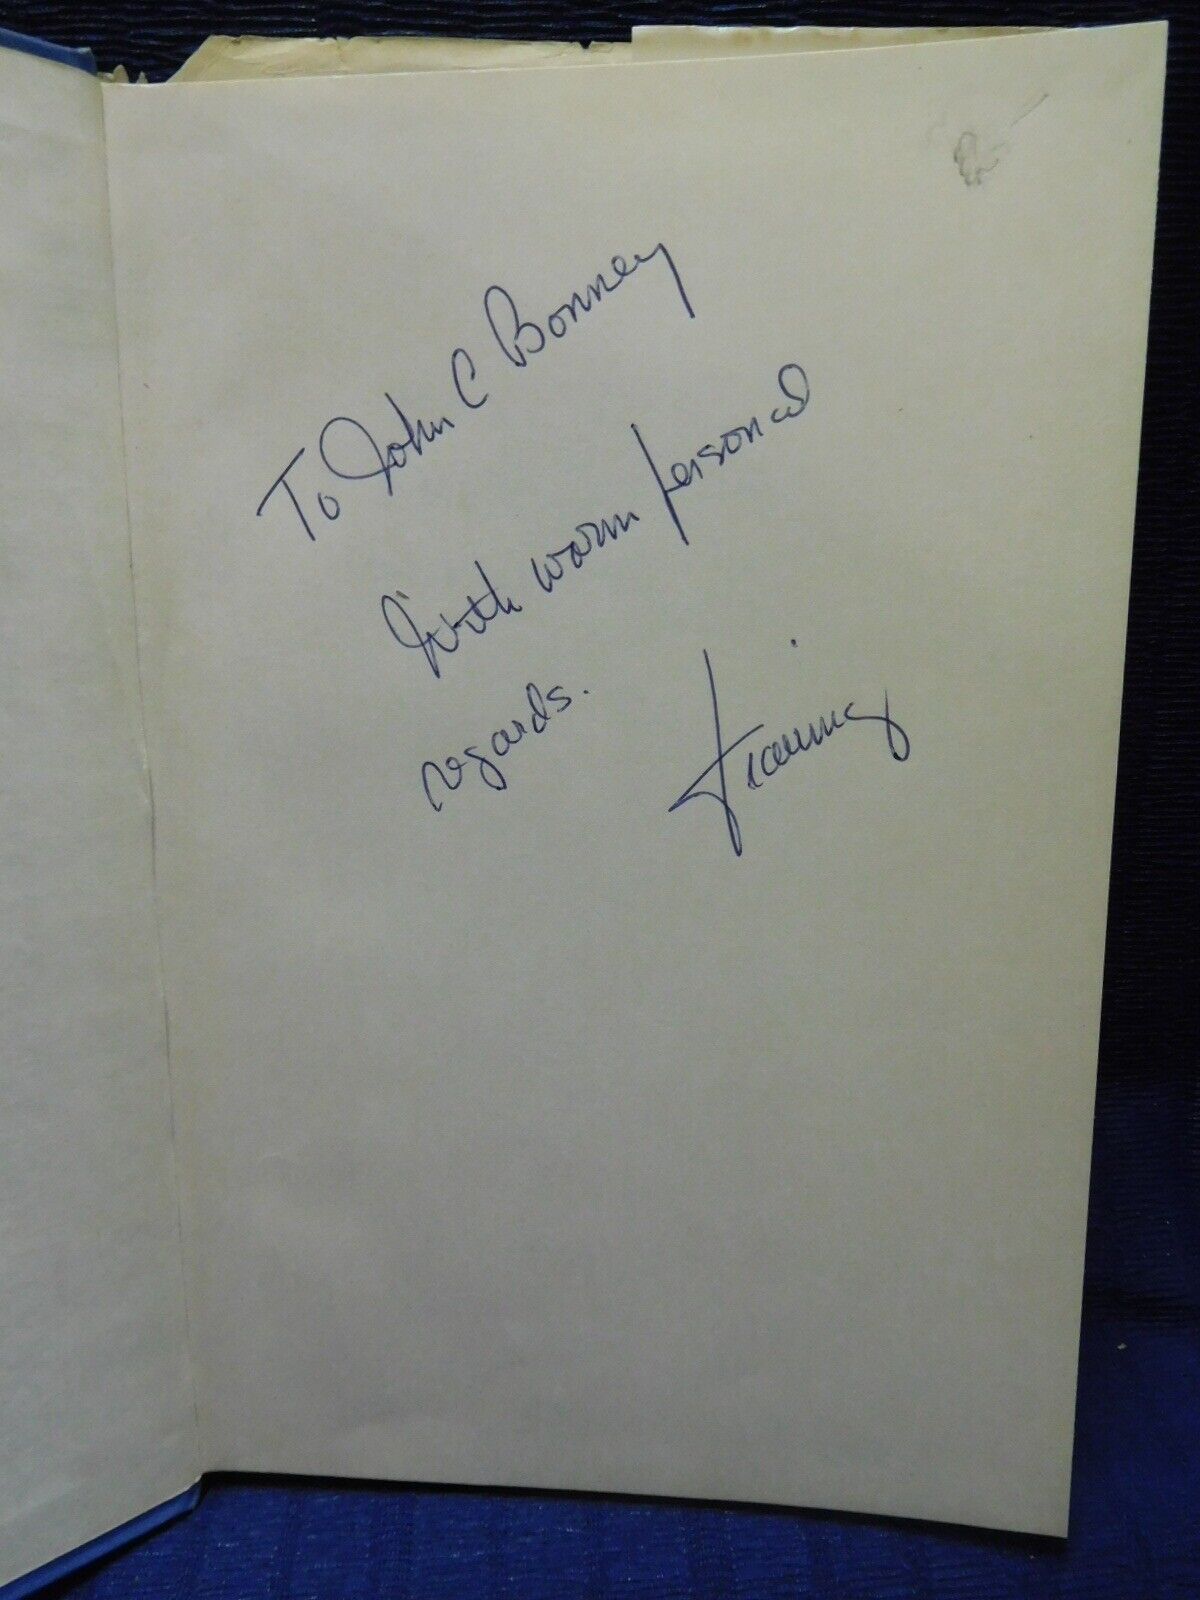 To John C Bonney
With warm personal
regards.